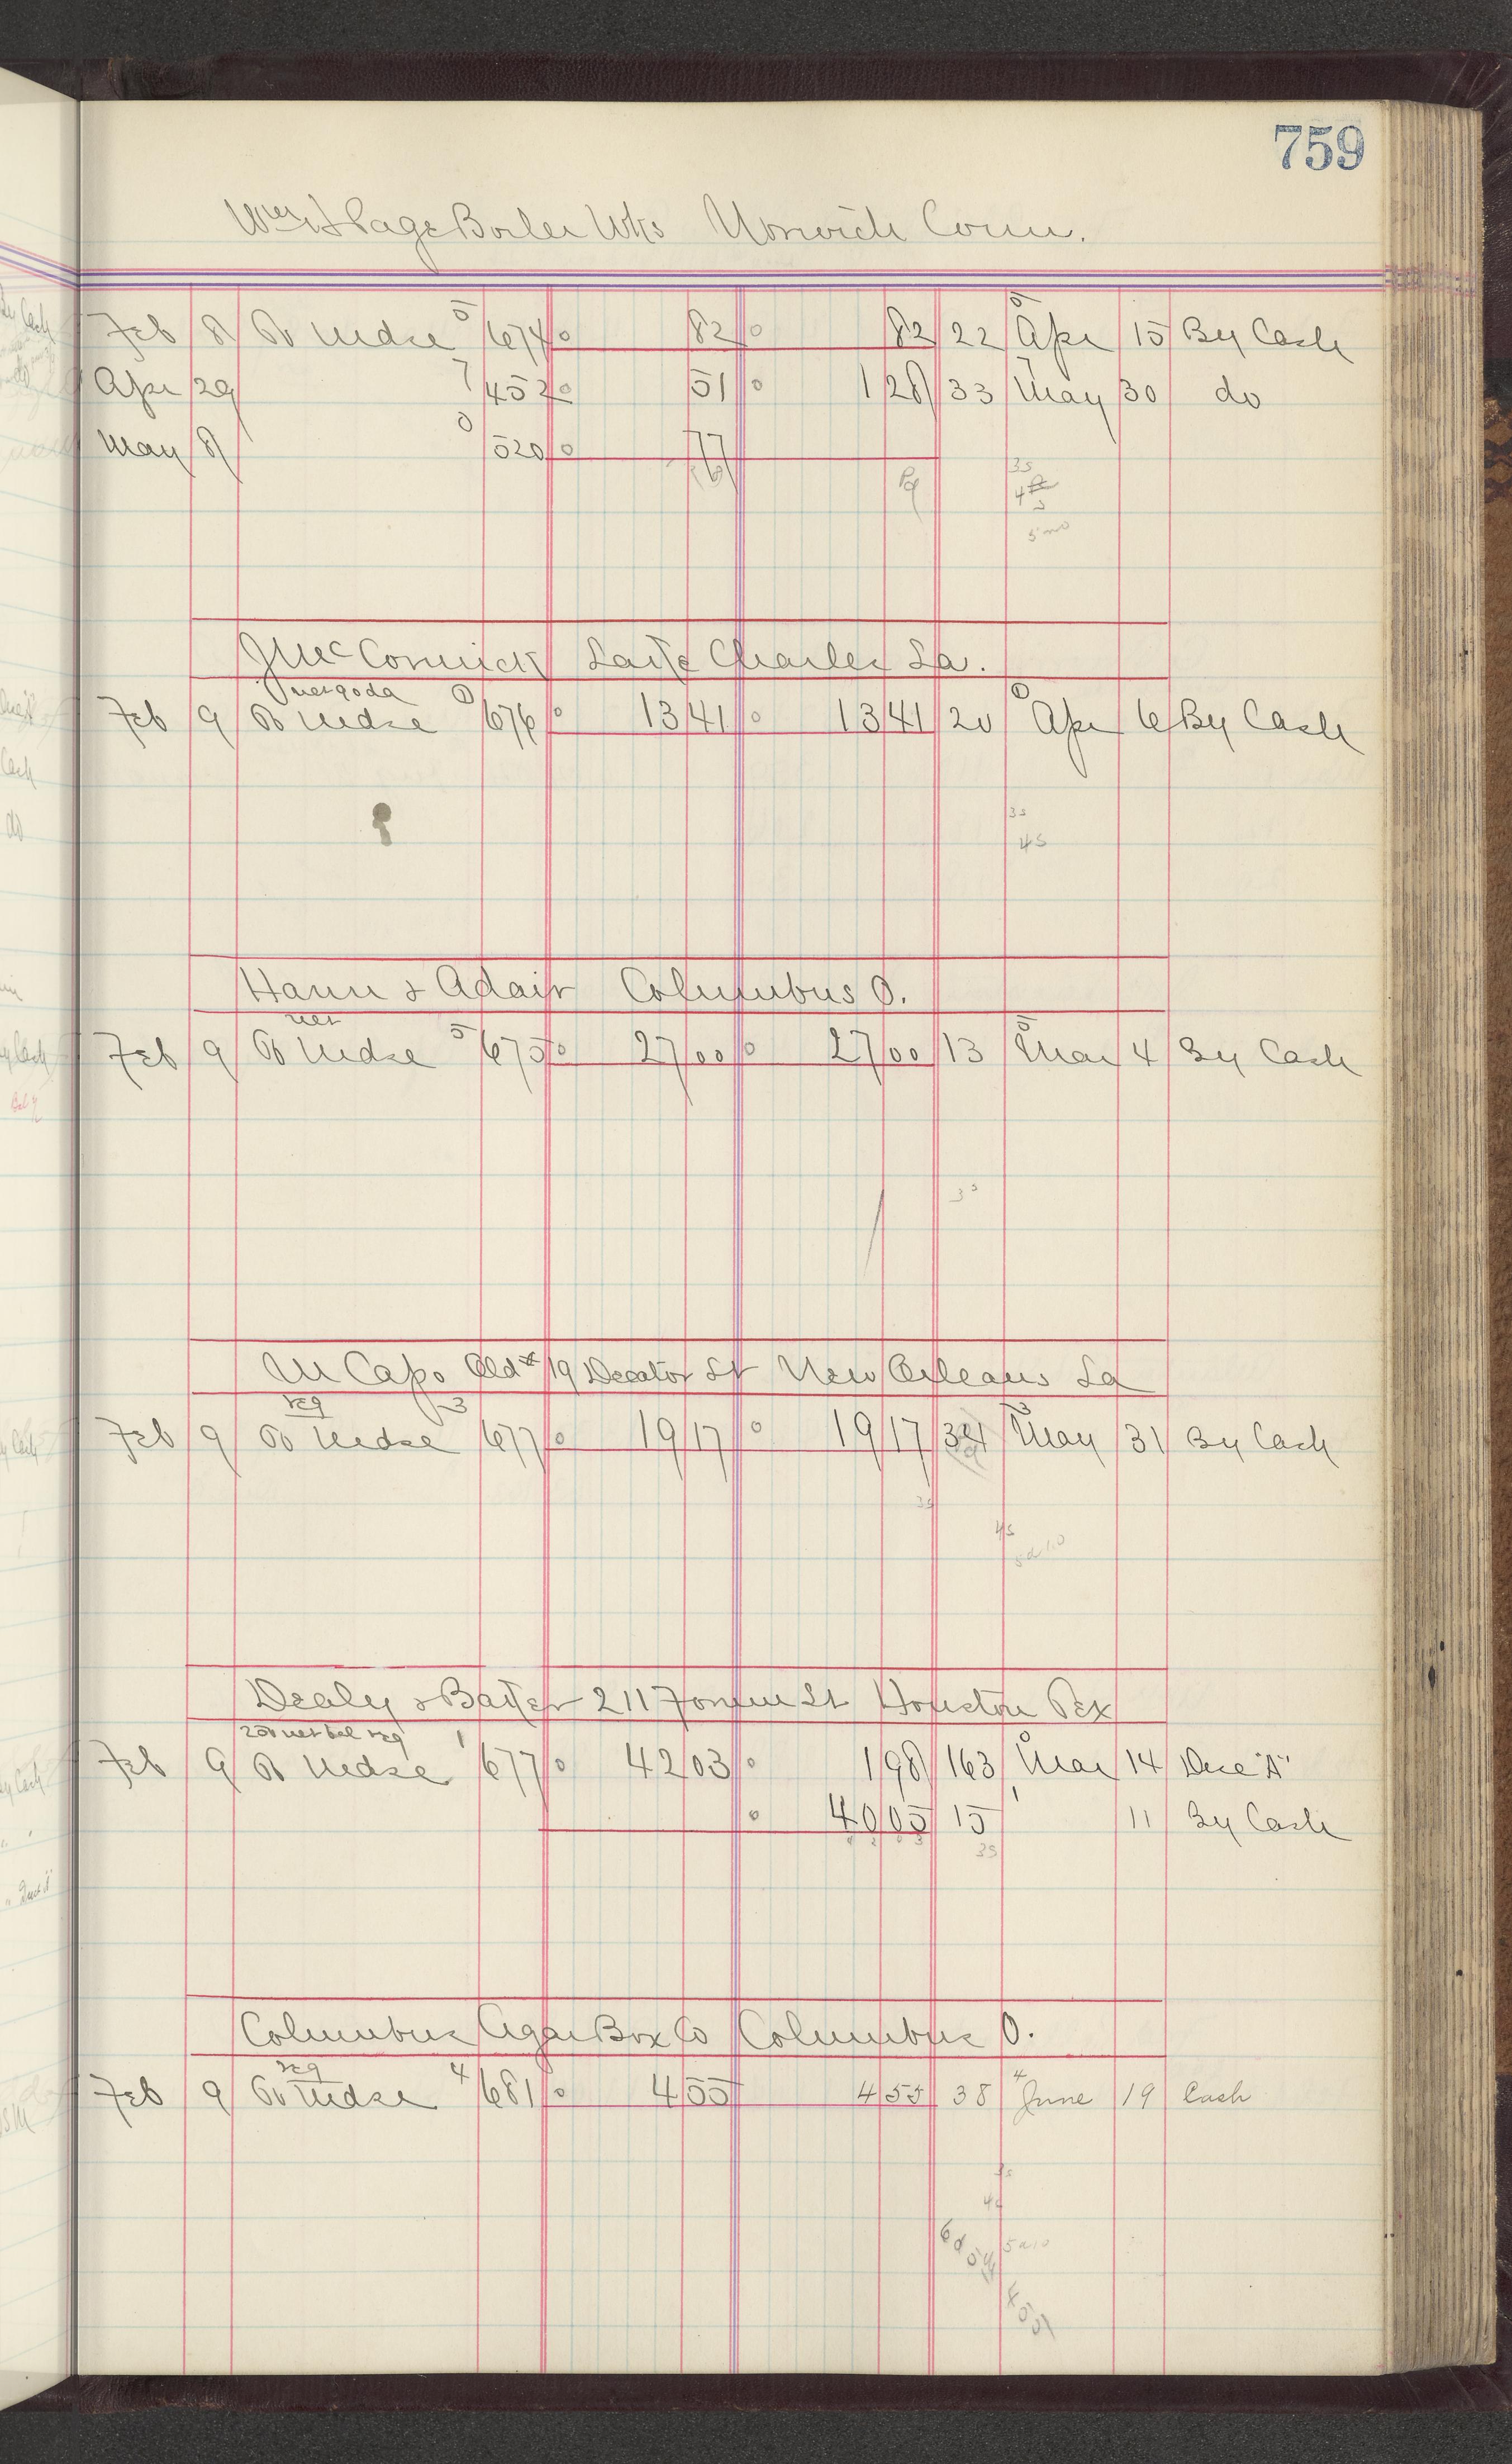 759
Wm H Page Boiler Wks Norwich Conn.
Feb 8 To Mdse 5 674 82 82 22 5 Apr 15 By Cash
Apr 29 7 452 51 1 28 33 7 May 30 do
May 8 0 520 77
3s
4
J McCormick Lake Charles La.
Feb 9 To Mdse 0 676 13 41 13 41 20 0 Apr 6 By Cash
3s
4s
Hann & Adair Columbus O.
net
Feb 9 To Mdse 5 675 27 00 27 00 13 5 Mar 4 By Cash
3s
M Capo Old # 19 Decator St New Orleans La
reg
Feb 9 To Mdse 3 677 19 17 19 17 34 3 May 31 By Cash
3s
4s
Dealy & Baker 211 Fannin St Houston Tex
net bal reg
Feb 9 To Mdse 1 677 42 03 1 98 163 Mar 14 Disc "A"
40 05 15 1 11 By Cash
3s
Columbus Cigar Box Co Columbus O.
reg
Feb 9 To Mdse 4 681 4 55 4 55 38 4 June 19 Cash
4s